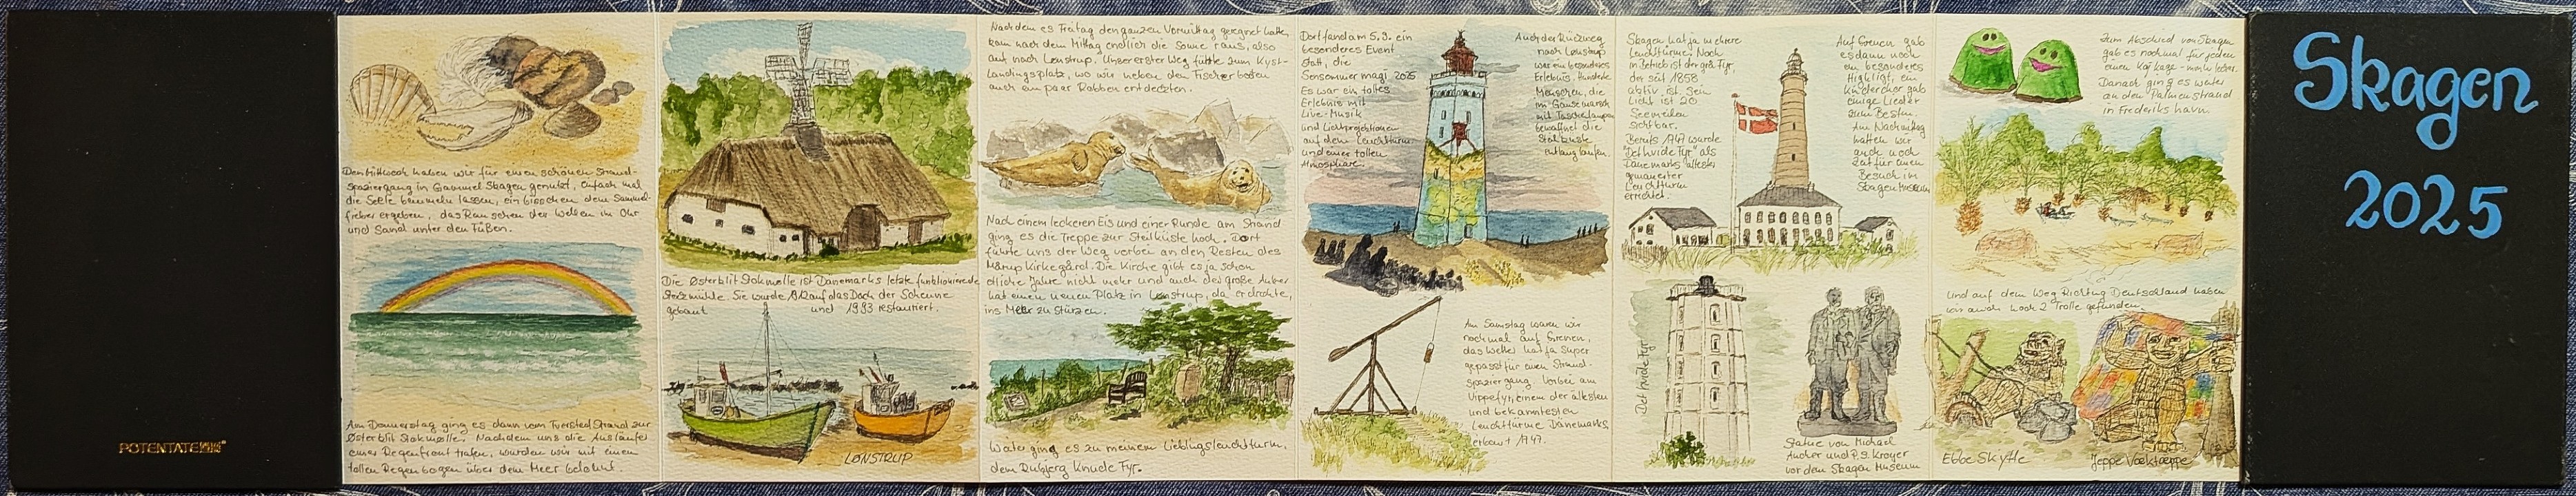 POTENTATE
Den Mittwoch haben wir für einen schönen Strand-
spaziergang in Gammel Skagen genutzt, einfach mal
die Seele baumeln lassen, ein bisschen dem Sammel-
fieber ergeben, das Rauschen der Wellen im Ohr
und Sand unter den Füßen.
Am Donnerstag ging es dann vom Tversted Strand zur
Østerklit Stokmølle. Nachdem uns die Ausläufer
einer Regenfront trafen, wurden wir mit einem
tollen Regenbogen über dem Meer belohnt.
Die Østerklit Stokmølle ist Dänemarks letzte funktionierende
Sie wurde auf das Dach der Scheune
gebaut und 1993 restauriert.
LØNSTRUP
Nachdem es Freitag den ganzen Vormittag geregnet hatte,
kam nach dem Mittag endlich die Sonne raus, also
auf nach Lønstrup. Unser erster Weg führte zum Kyst-
landingsplatz, wo wir neben den Fischerbooten
auch ein paar Robben entdeckten.
Nach einem leckeren Eis und einer Runde am Strand
ging es die Treppe zur Steilküste hoch. Dort
führte uns der Weg vorbei an den Resten des
Mårup Kirkegård. Die Kirche gibt es ja schon
etliche Jahre nicht mehr und auch der große Anker
hat einen neuen Platz in Lønstrup, da er drohte,
ins Meer zu stürzen.
Weiter ging es zu meinem Lieblingsleuchtturm,
dem Rubjerg Knude Fyr.
Dort fand am 5.9. ein
besonderes Event
statt, die
Sensommermagi 2025
Es war ein tolles
Erlebnis mit
Live-Musik
und Lichtprojektionen
auf dem Leuchtturm
und einer tollen
Atmosphäre.
Auch der Rückweg
nach Lønstrup
war ein besonderes
Erlebnis. Hunderte
Menschen, die
im Gänsemarsch
mit Taschenlampen
bewaffnet die
Steilküste
entlang laufen.
Am Samstag waren wir
nochmal auf Grenen,
das Wetter hat ja super
gepasst für einen Strand-
spaziergang vorbei am
Vippefyr, einem der ältesten
und bekanntesten
Leuchttürme Dänemarks
erbaut 1747.
Skagen hat ja mehrere
Leuchttürme. Noch
in Betrieb ist der grå Fyr,
der seit 1858
aktiv ist. Sein
Licht ist 20
Seemeilen
sichtbar.
Bereits 1747 wurde
"Det hvide Fyr" als
Dänemarks ältester
gemauerter
Leuchtturm
errichtet.
Auf Grenen gab
es dann noch
ein besonderes
Highlight, ein
Kinderchor gab
einige Lieder
zum Besten.
Am Nachmittag
hatten wir
auch noch
Zeit für einen
Besuch im
Skagen Museum
Det hvide Fyr
Statue von Michael
Ancher und P.S. Krøyer
vor dem Skagen Museum
Zum Abschied von Skagen
gab es nochmal für jeden
einen
Danach ging es weiter
an den Palmenstrand
in Frederikshavn.
Und auf dem Weg Richtung Deutschland haben
wir auch noch 2 Trolle gefunden
Ebbe Skytte
Jeppe
Skagen
2025